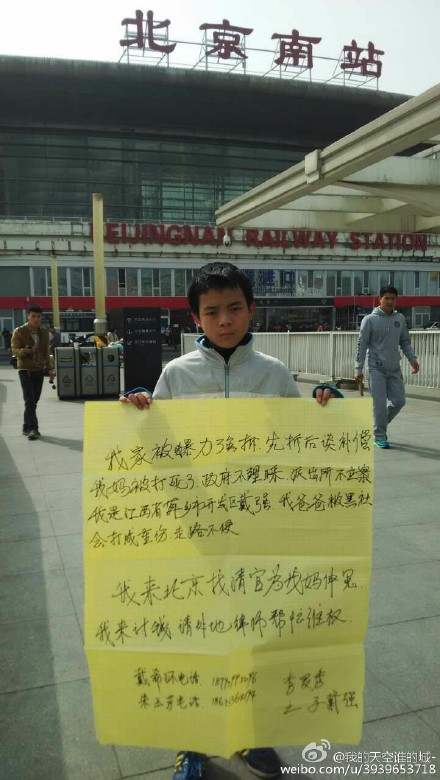 北京南站
BEIJINGNAN RAILWAY STATION
我家被暴力强拆.先拆后谈补偿
我妈被打死了.政府不理睬.派出所不立案
我是江西省萍乡市开发区戴强.我爸爸被黑社
会打成重伤.走路不便
我来北京找清官为我妈伸冤.
我来计钱.请外地律师帮忙维权
戴
电话
朱
电话
李
之子戴强
@我的天空谁的城-
weibo.com/u/3939653718